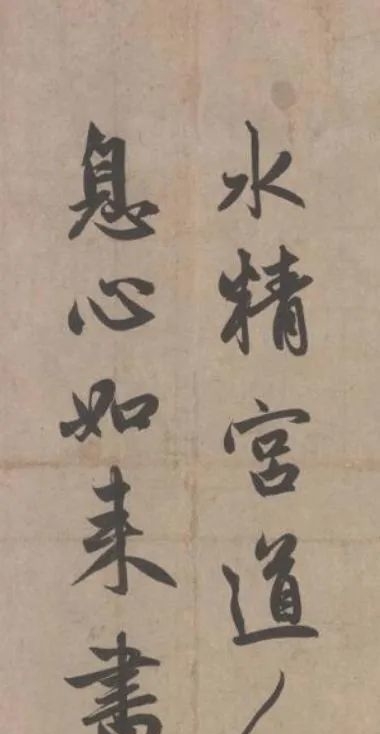 水精宮道
息心如来書